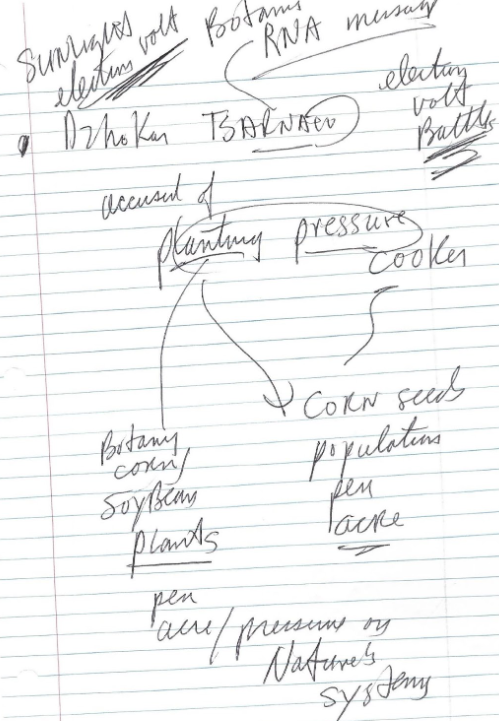 Sunlights Botany
electron volt RNA message
Dzhokar TSARNAev
electron
volt
Battle
accused of
planting pressure
cooker
CORN seeds
population
per
acre
Botany
corn/
SoyBean
plants
per
acre/pressure on
Nature's
systems